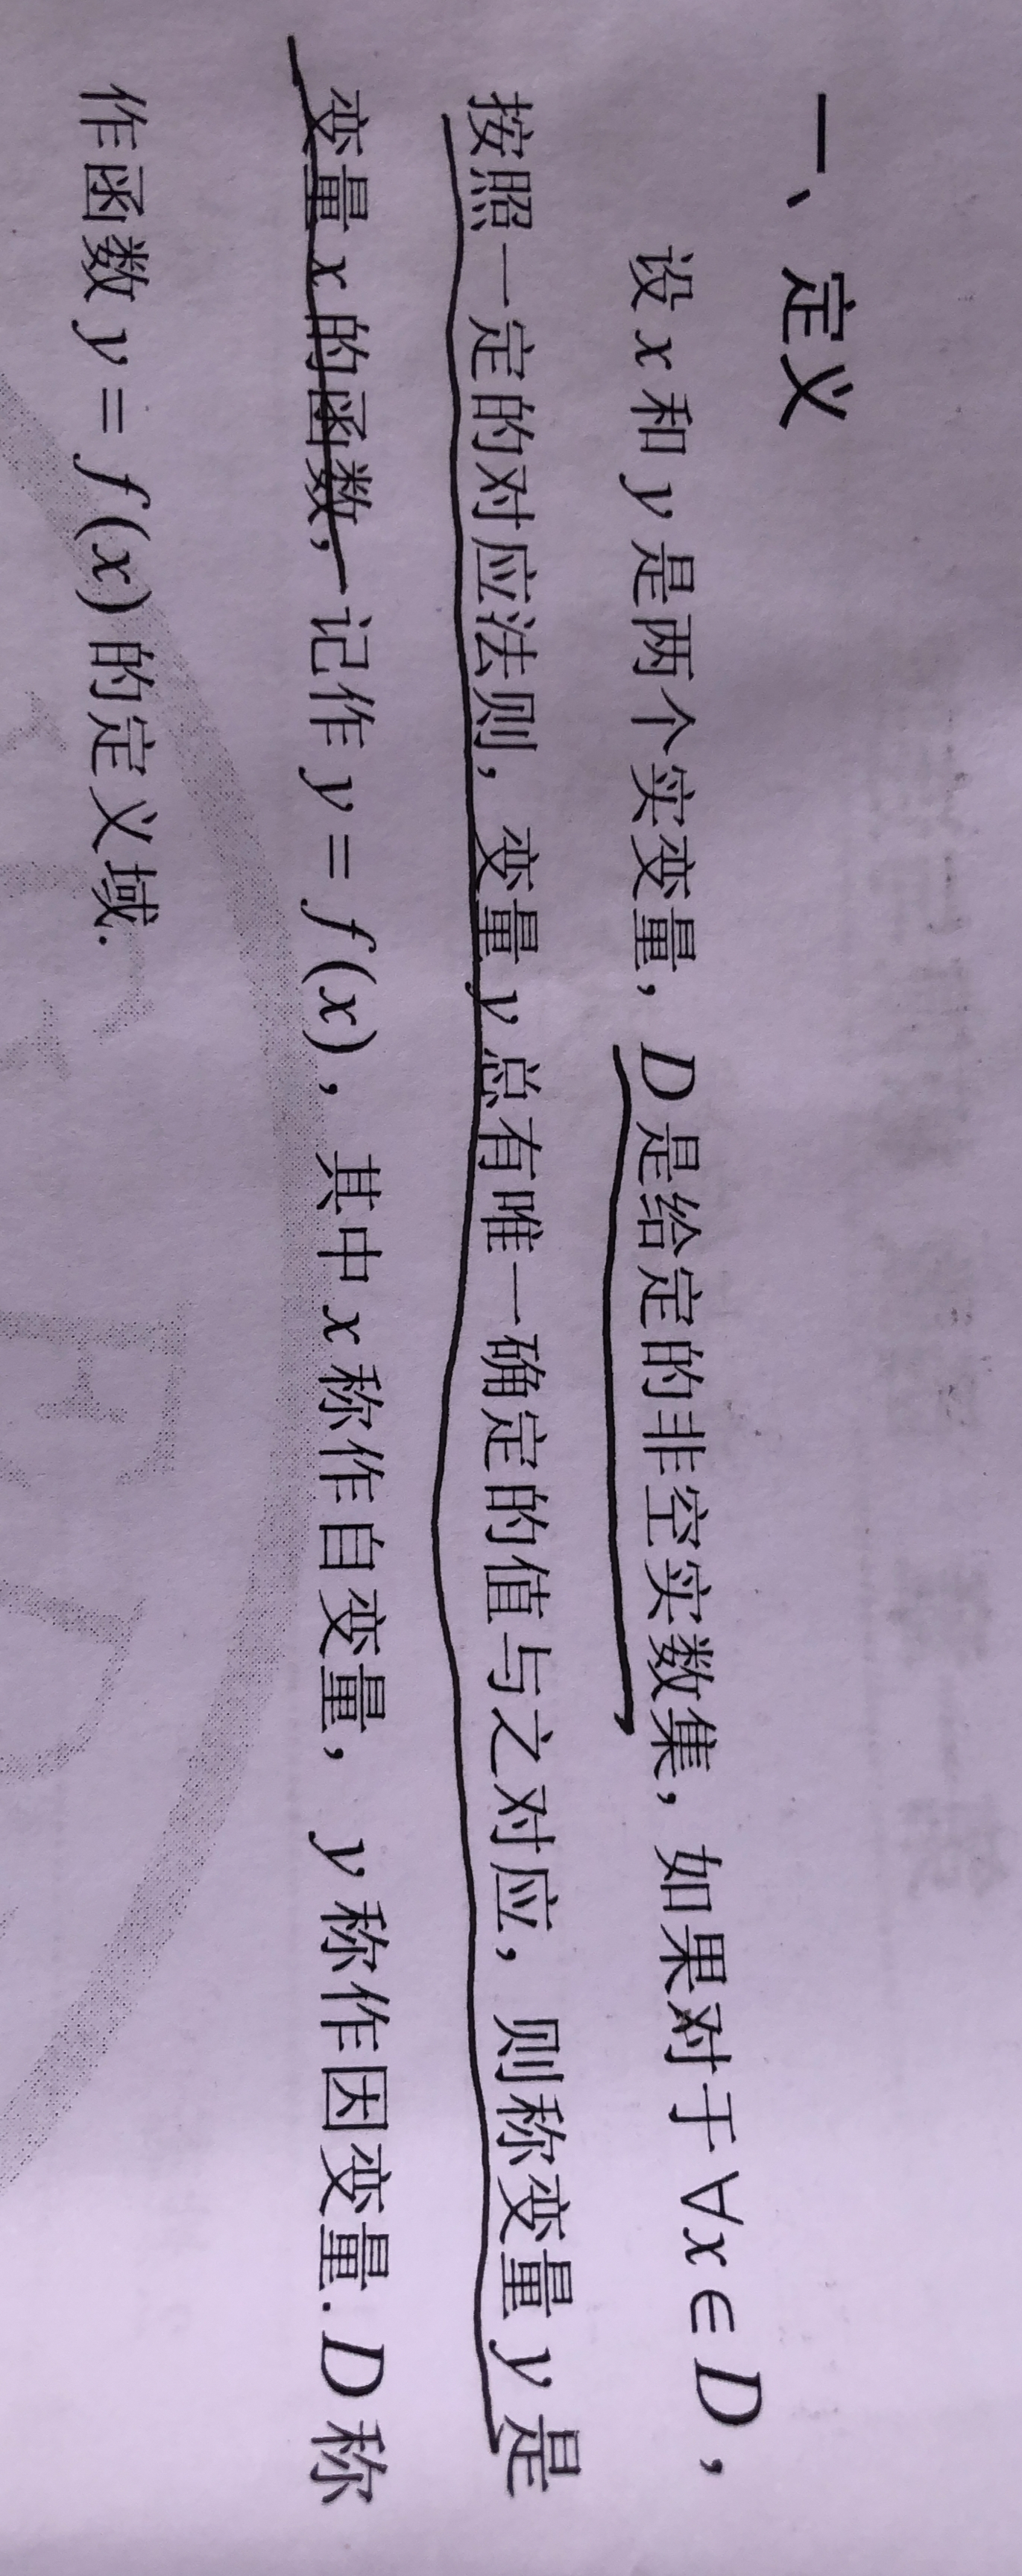 一、定义
设 x 和 y 是两个实变量，D 是给定的非空实数集，如果对于 ∀x ∈ D，
按照一定的对应法则，变量 y 总有唯一确定的值与之对应，则称变量 y 是
变量 x 的函数，记作 y = f(x)，其中 x 称作自变量，y 称作因变量. D 称
作函数 y = f(x) 的定义域.